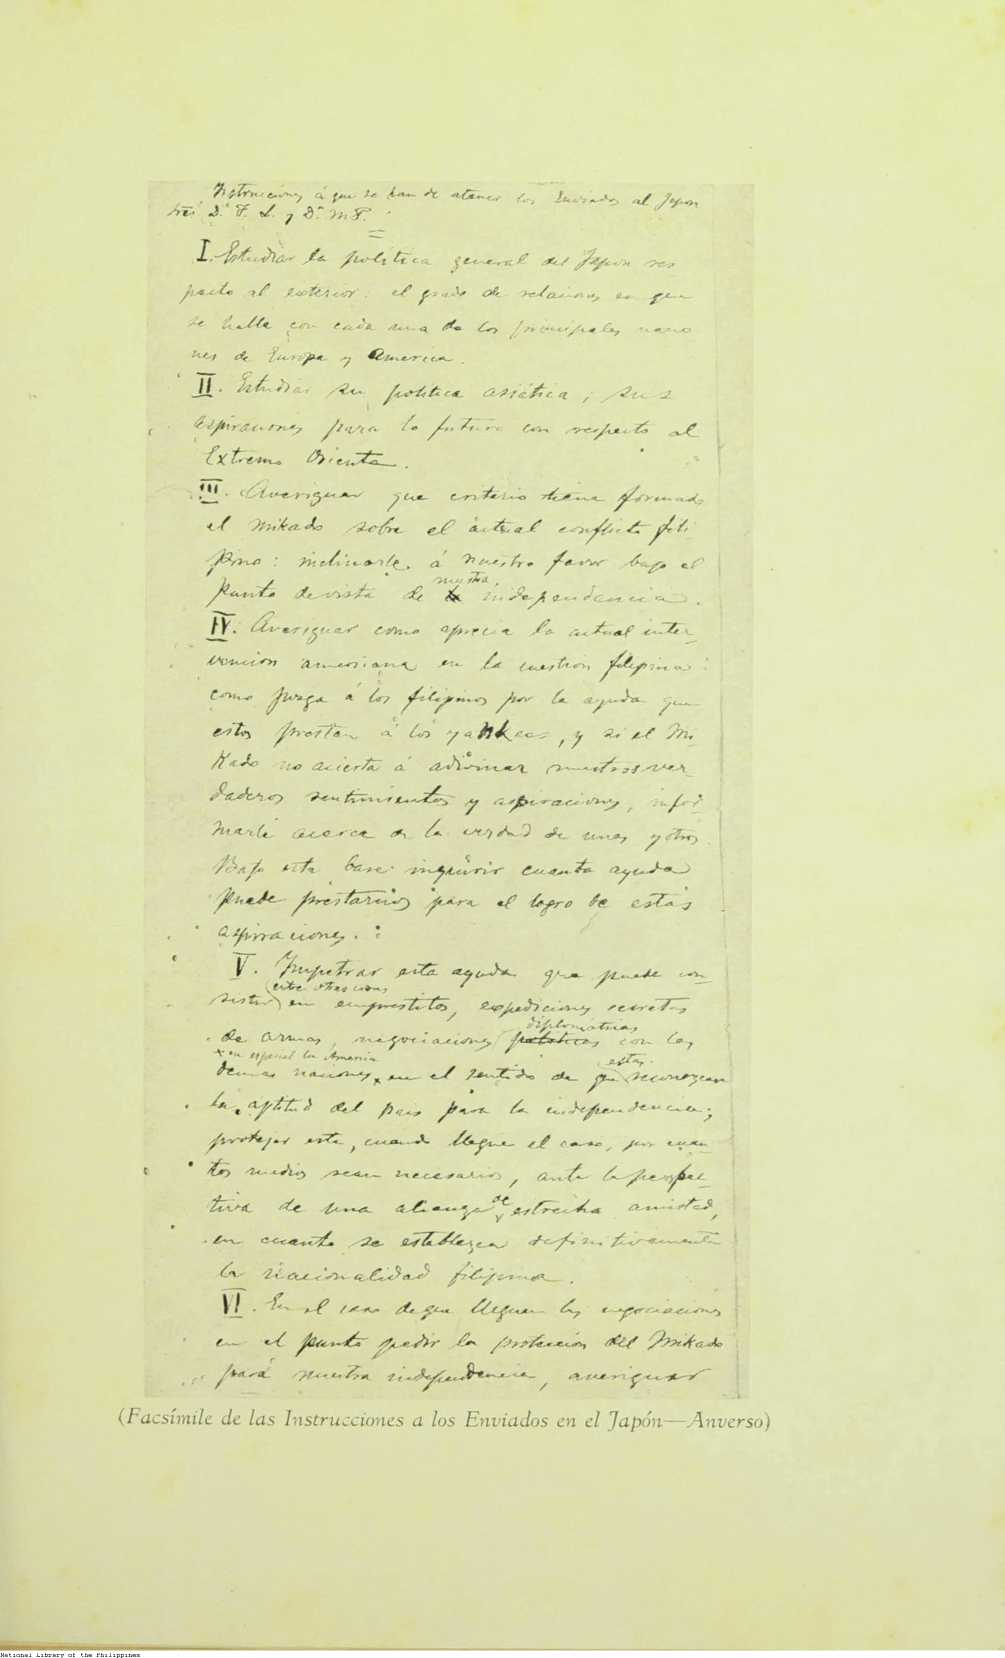 Instrucciones á que se han de atener los Enviados al Japon
Sres. Dn. F. L. y Dn. M P.
I. Estudiar la política general del Japon res
pecto al exterior: el grado de relaciones en que
se halla con cada una de las principales nacio
nes de Europa y America.
II. Estudiar su política asiática; sus
aspiraciones para lo futuro con respecto al
Extremo Oriente.
III. Averiguar que criterio tiene formado
el Mikado sobre el actual conflicto fili
pino: inclinarle á nuestro favor bajo el
punto de vista de nuestra independencia.
IV. Averiguar como aprecia la actual inter-
vencion americana en la cuestion filipina:
como juzga á los filipinos por la ayuda que
estos prestan á los yankees, y si el Mi-
kado no acierta á adivinar nuestros ver-
daderos sentimientos y aspiraciones, infor
marle acerca de la verdad de unas y otros.
Bajo esta base inquirir cuanta ayuda
puede prestarnos para el logro de estas
aspiraciones.
V. Impetrar esta ayuda que puede con-
sistir (entre otras cosas) en empréstitos, expediciones secretas
de armas, negociaciones politicas diplomáticas con las
demas naciones, x en especial la America en el sentido de que estas reconozcan
la aptitud del pais para la independencia;
protejer esta, cuando llegue el caso, por cuan-
tos medios sean necesarios, ante la perspec-
tiva de una alianza de estrecha amistad,
en cuanto se establezca definitivamente
la nacionalidad filipina.
VI. En el caso de que lleguen las negociaciones
en el punto pedir la proteccion del Mikado
para nuestra independencia, averiguar
(Facsímile de las Instrucciones a los Enviados en el Japón—Anverso)
National Library of the Philippines